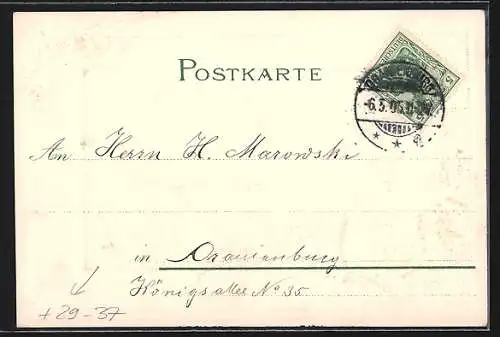 POSTKARTE
-6.5.05.
An Herrn H. Marowski
in Oranienburg
Königsallee No 35
+29-37